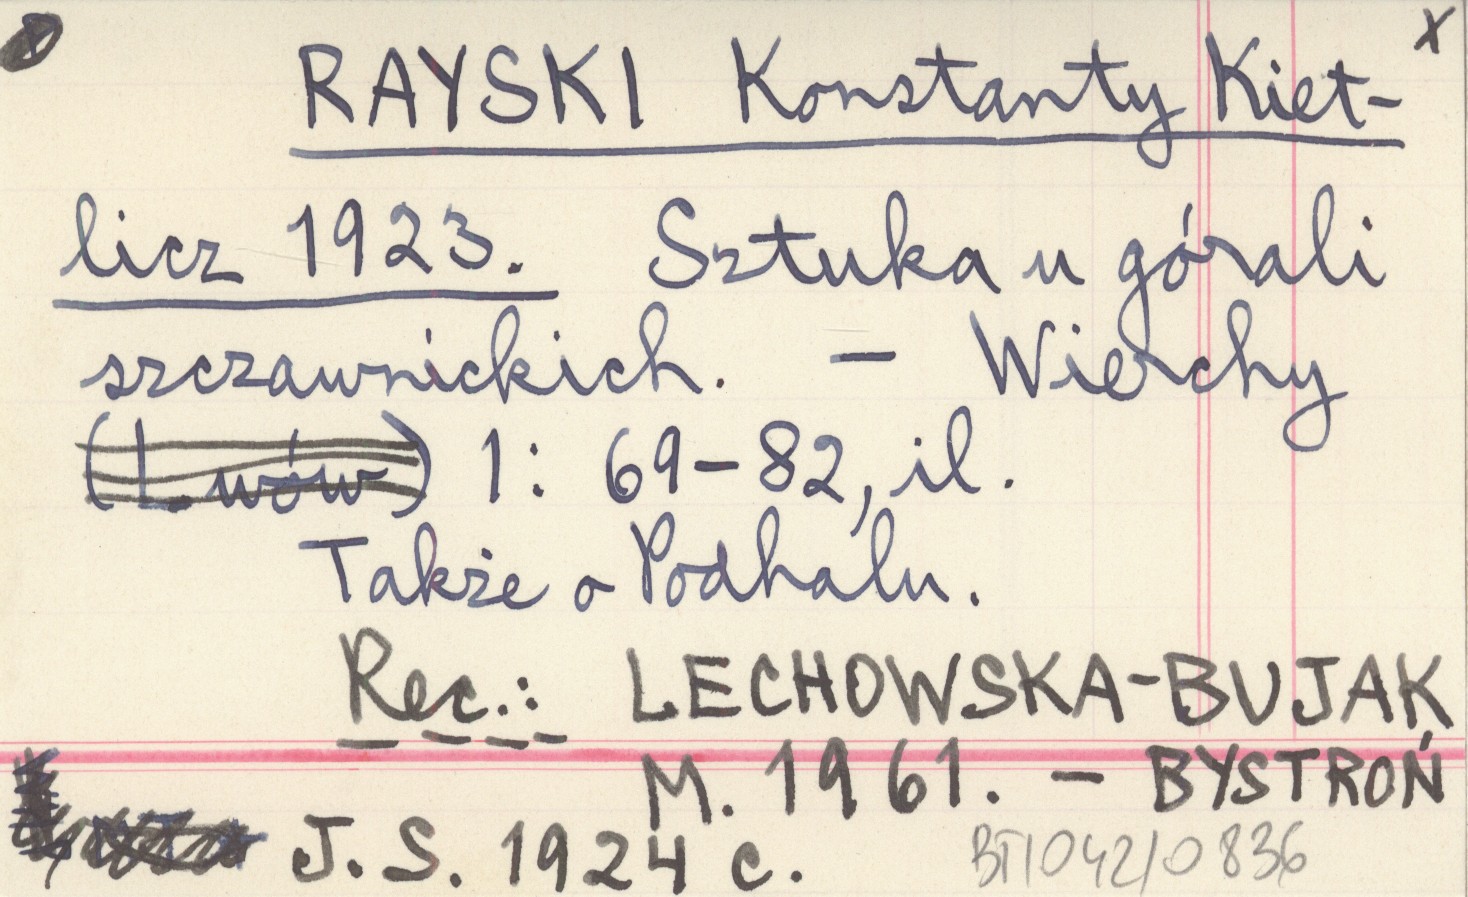 x
RAYSKI Konstanty Kiet-
licz 1923. Sztuka u górali
szczawnickich. — Wierchy
(Lwów) 1: 69-82, il.
Także o Podhalu.
Rec.: LECHOWSKA-BUJAK
M. 1961. — BYSTROŃ
J. S. 1924 c.
BT/042/0836